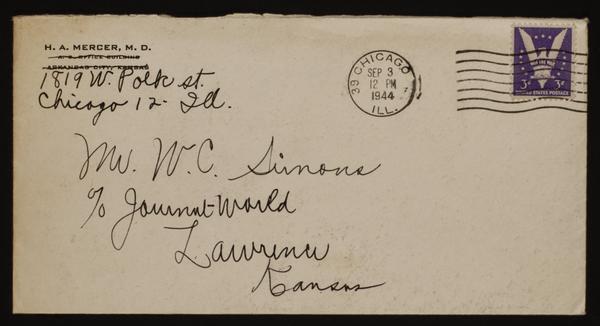 H. A. MERCER, M. D.
A. C. OFFICE BUILDING
ARKANSAS CITY, KANSAS
1819 W. Polk st.
Chicago 12. Ill.
39 CHICAGO
SEP 3
12 PM
1944
ILL.
WIN THE WAR
3¢ 3¢
UNITED STATES POSTAGE
Mr. W. C. Simons
% Journal-World
Lawrence
Kansas